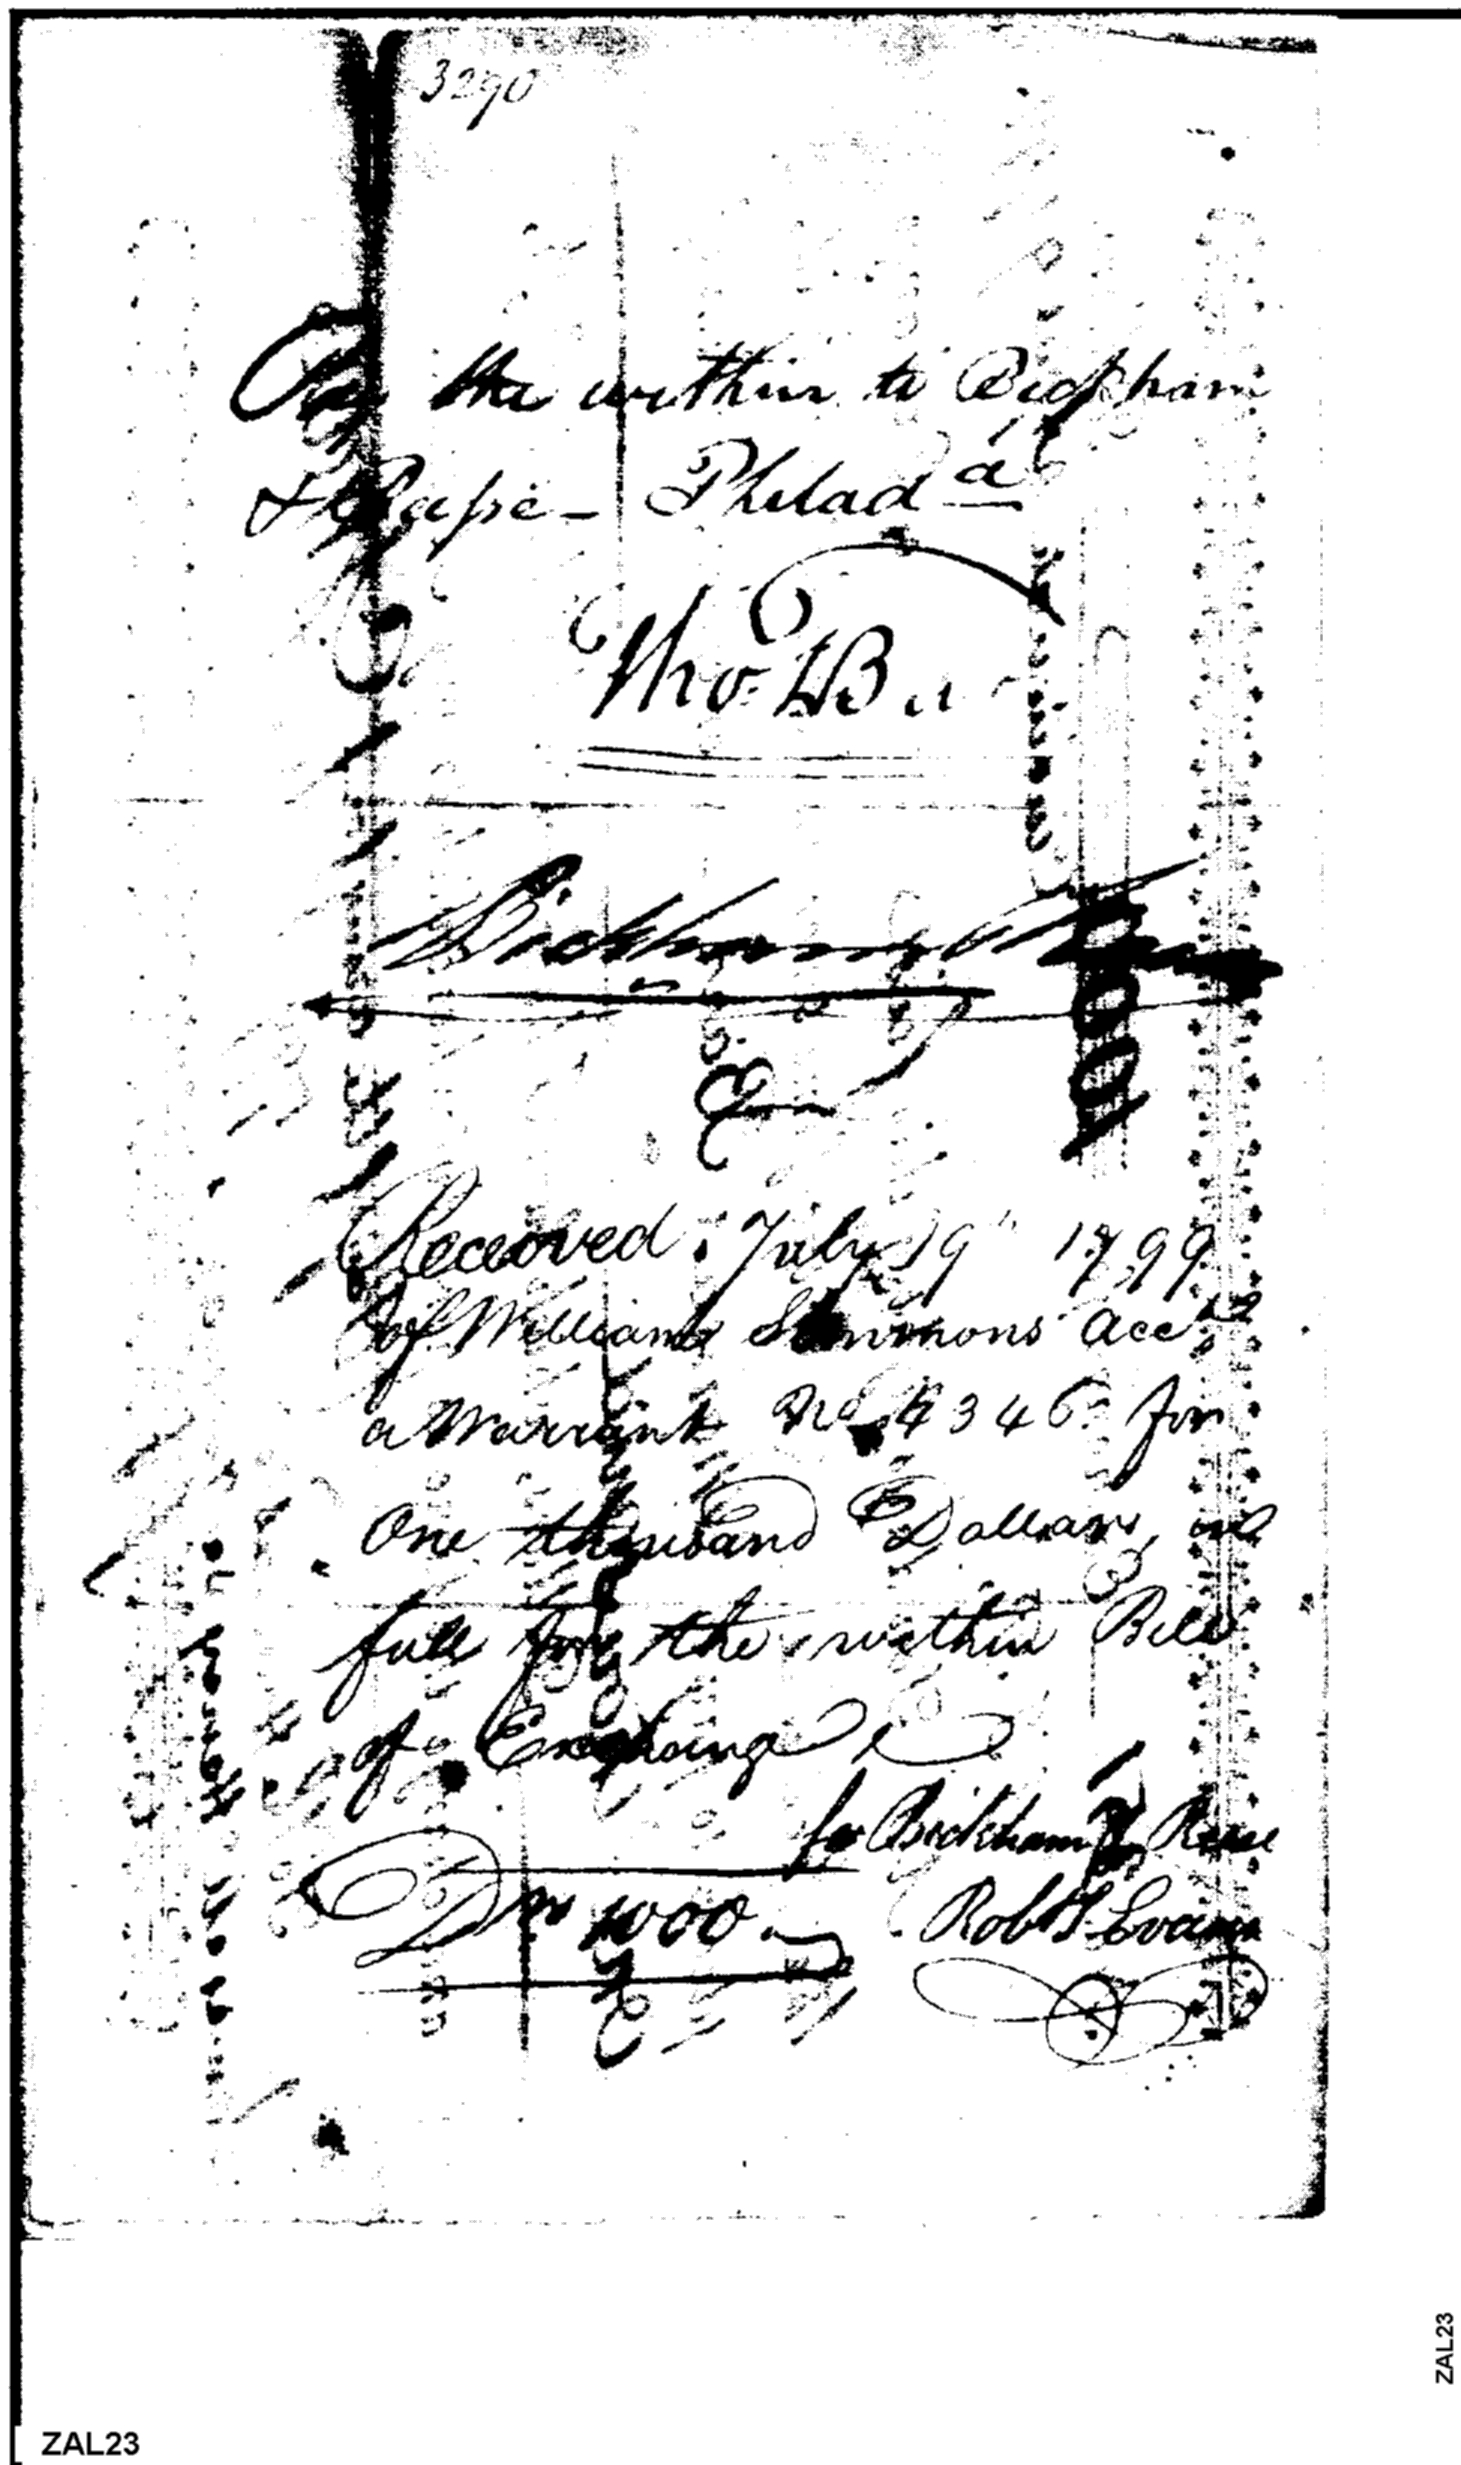 3290
Pay the within to Bickham
& Reese - Philad a
Tho
Bickham
Received July 19th 1799
of William Simmons Acct
a Warrant No 4346 for
One thousand Dollars, in
full for the within Bill
of Exchange
for Bickham & Reese
Drs 1000. Robt Evans
ZAL23
ZAL23